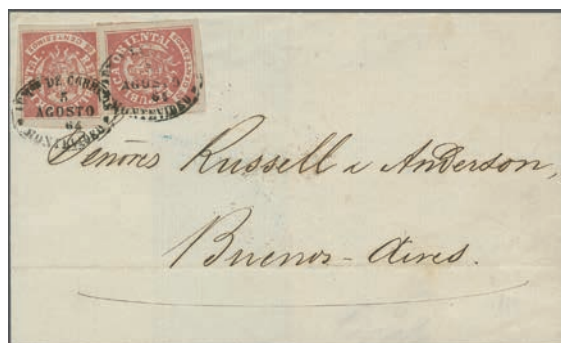 REPUBLICA ORIENTAL
DE CORREOS
5
AGOSTO
64
MONTEVIDEO
AGOSTO
64
MONTEVIDEO
Señores Russell & Anderson,
Buenos-Aires.